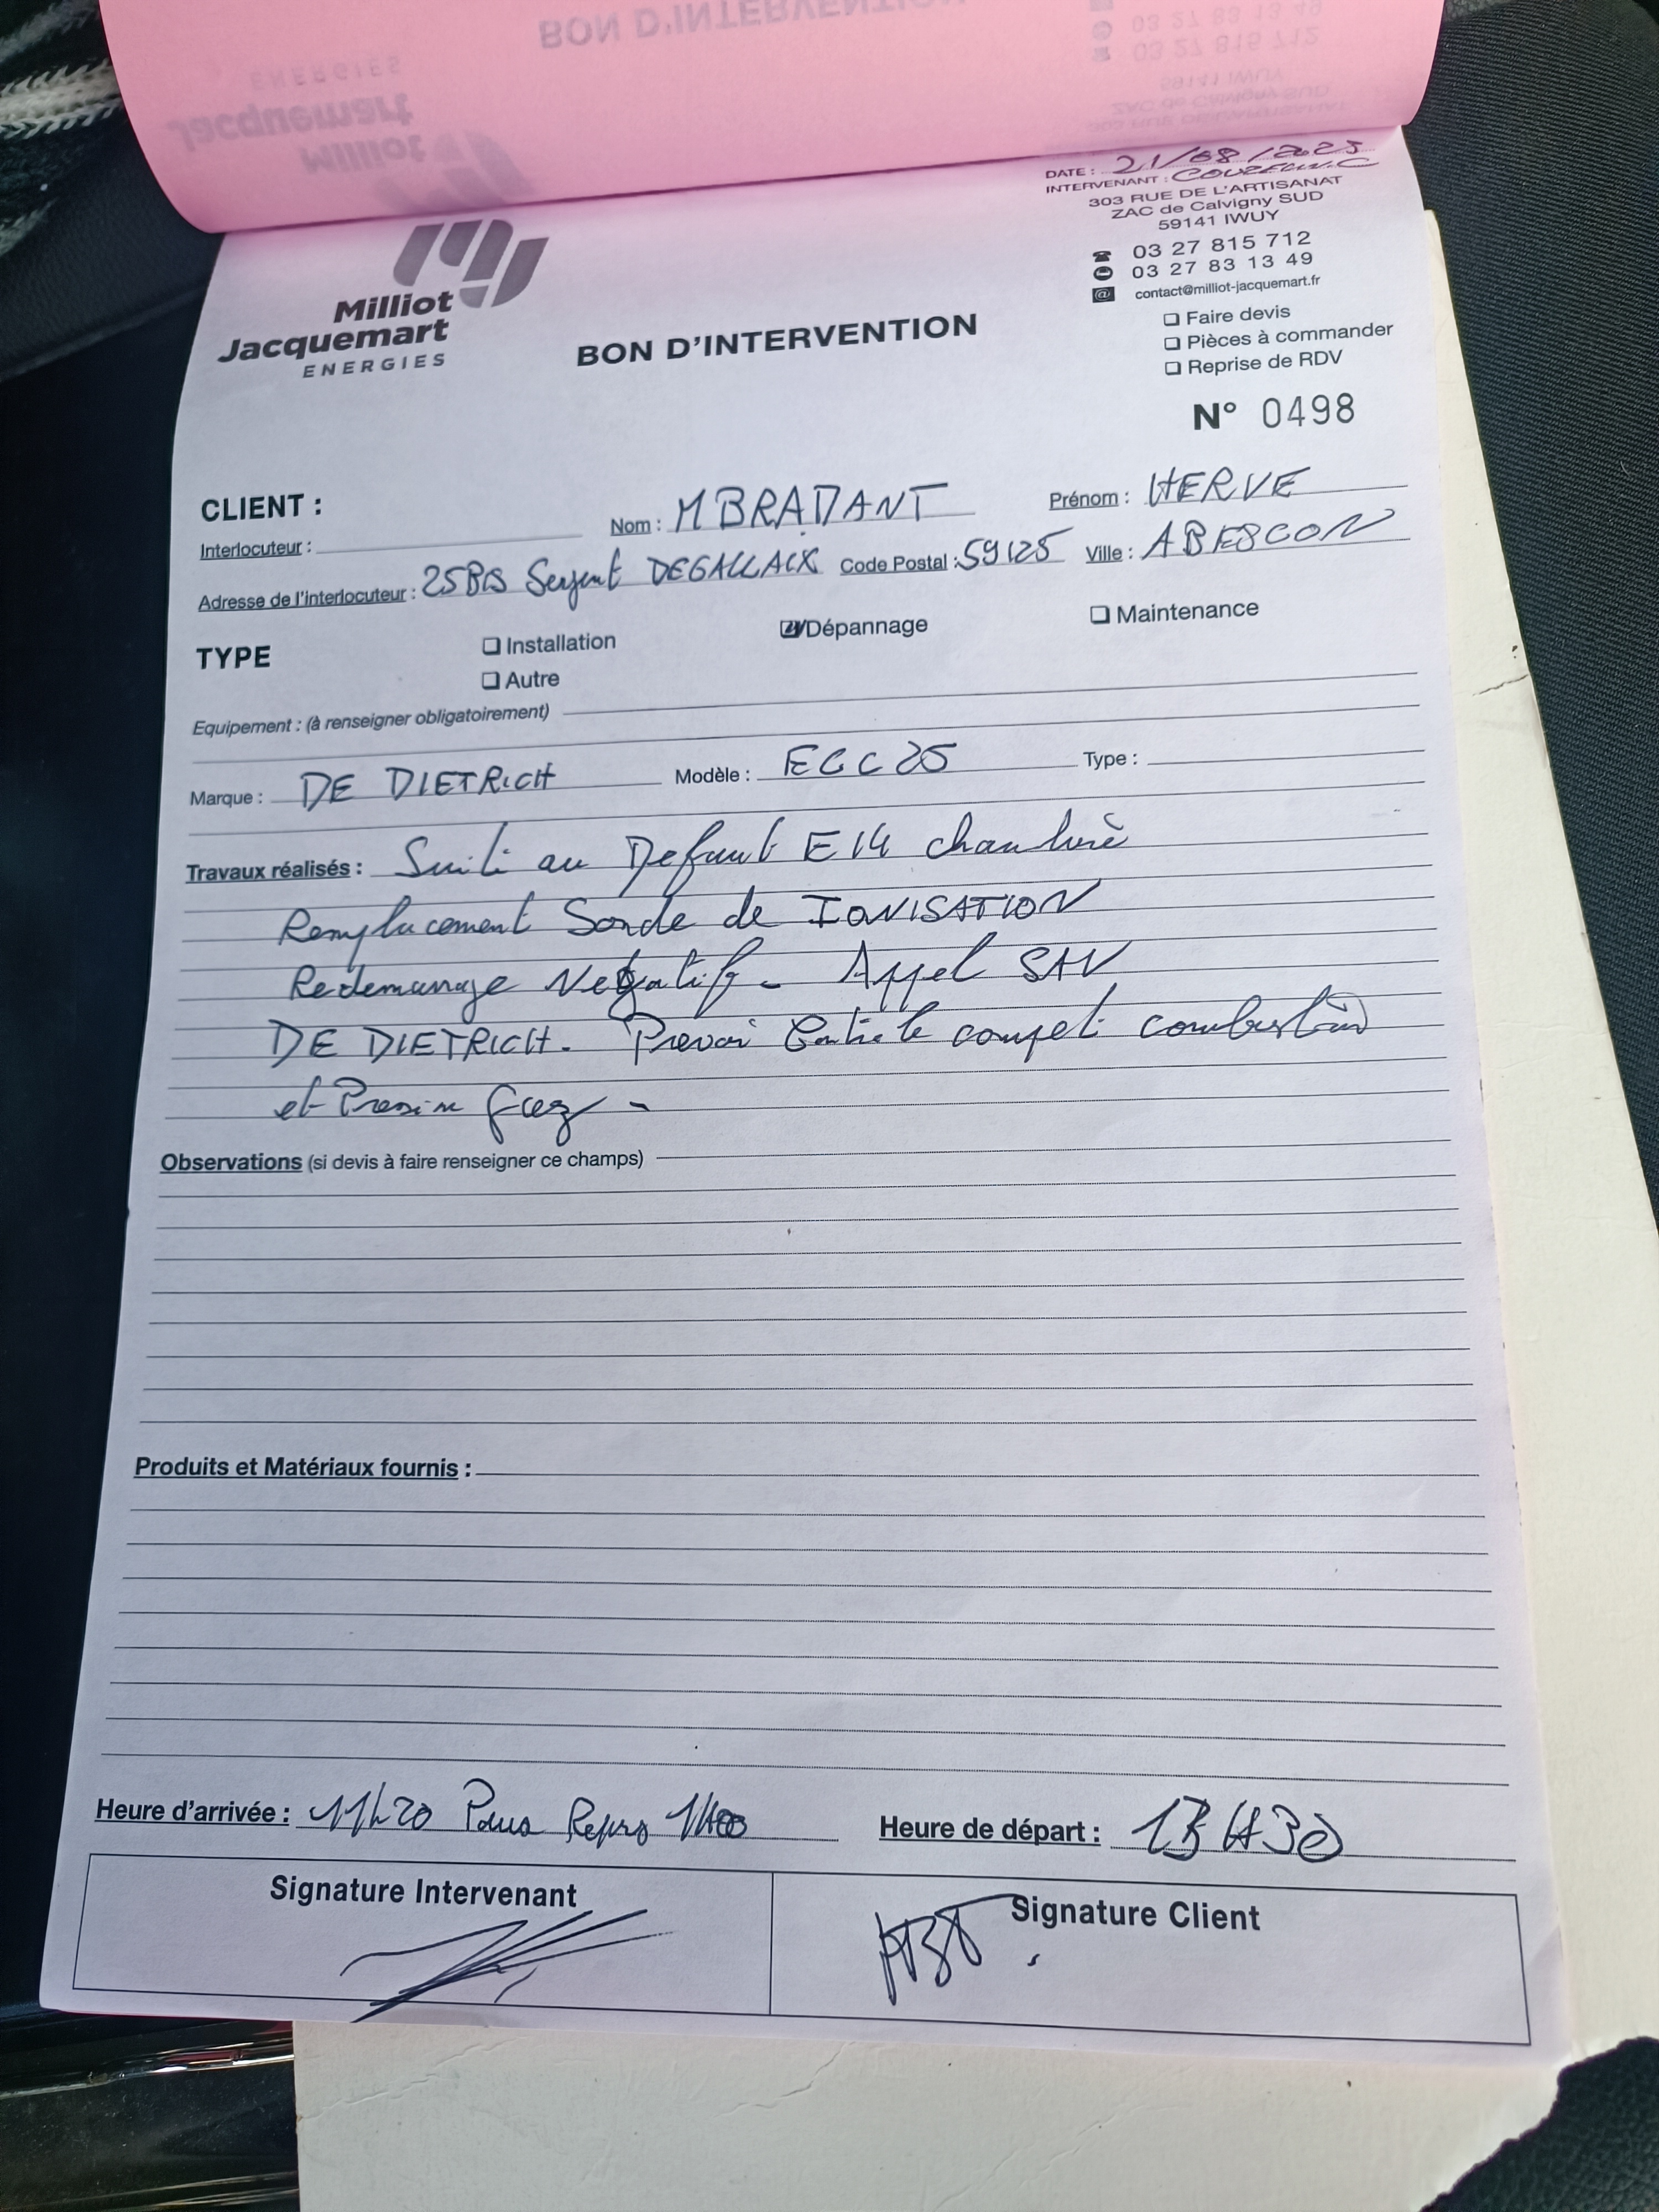 BON D'INTERVENTION
03 27 83 13 49
03 27 815 712
59141 IWUY
ZAC de Calvigny SUD
303 RUE DE L'ARTISANAT
ENERGIES
Jacquemart
Milliot
DATE : 21/08/2025
INTERVENANT :
303 RUE DE L'ARTISANAT
ZAC de Calvigny SUD
59141 IWUY
03 27 815 712
03 27 83 13 49
contact@milliot-jacquemart.fr
Milliot
Jacquemart
ENERGIES
BON D'INTERVENTION
Faire devis
Pièces à commander
Reprise de RDV
N° 0498
CLIENT :
Interlocuteur : Nom : M BRADANT Prénom : HERVE
Adresse de l'interlocuteur : 25Bis Sergent DEGALLAIX Code Postal : 59125 Ville : ABESCON
TYPE Installation Dépannage Maintenance
Autre
Equipement : (à renseigner obligatoirement)
Marque : DE DIETRICH Modèle : EGC 25 Type :
Travaux réalisés : Suite au Defaut E14 chaudière
Remplacement Sonde de IONISATION
Redemarrage Negatif - Appel SAV
DE DIETRICH - Prevoir Contrôle complet combustion
et Pression gaz -
Observations (si devis à faire renseigner ce champs)
Produits et Matériaux fournis :
Heure d'arrivée : 11h20 Pause Repas Heure de départ : 13H30
Signature Intervenant Signature Client